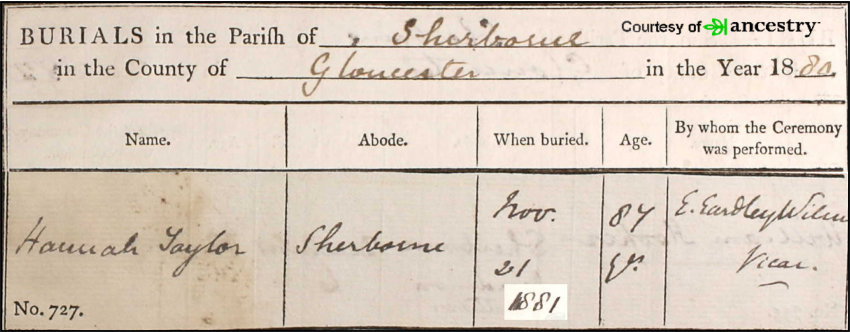 BURIALS in the Parish of Sherborne
Courtesy of ancestry
in the County of Gloucester in the Year 1880.
Name. Abode. When buried. Age. By whom the Ceremony was performed.
Hannah Taylor Sherborne Nov. 21 1881 87 yrs. E. Eardley Wilm Vicar.
No. 727.